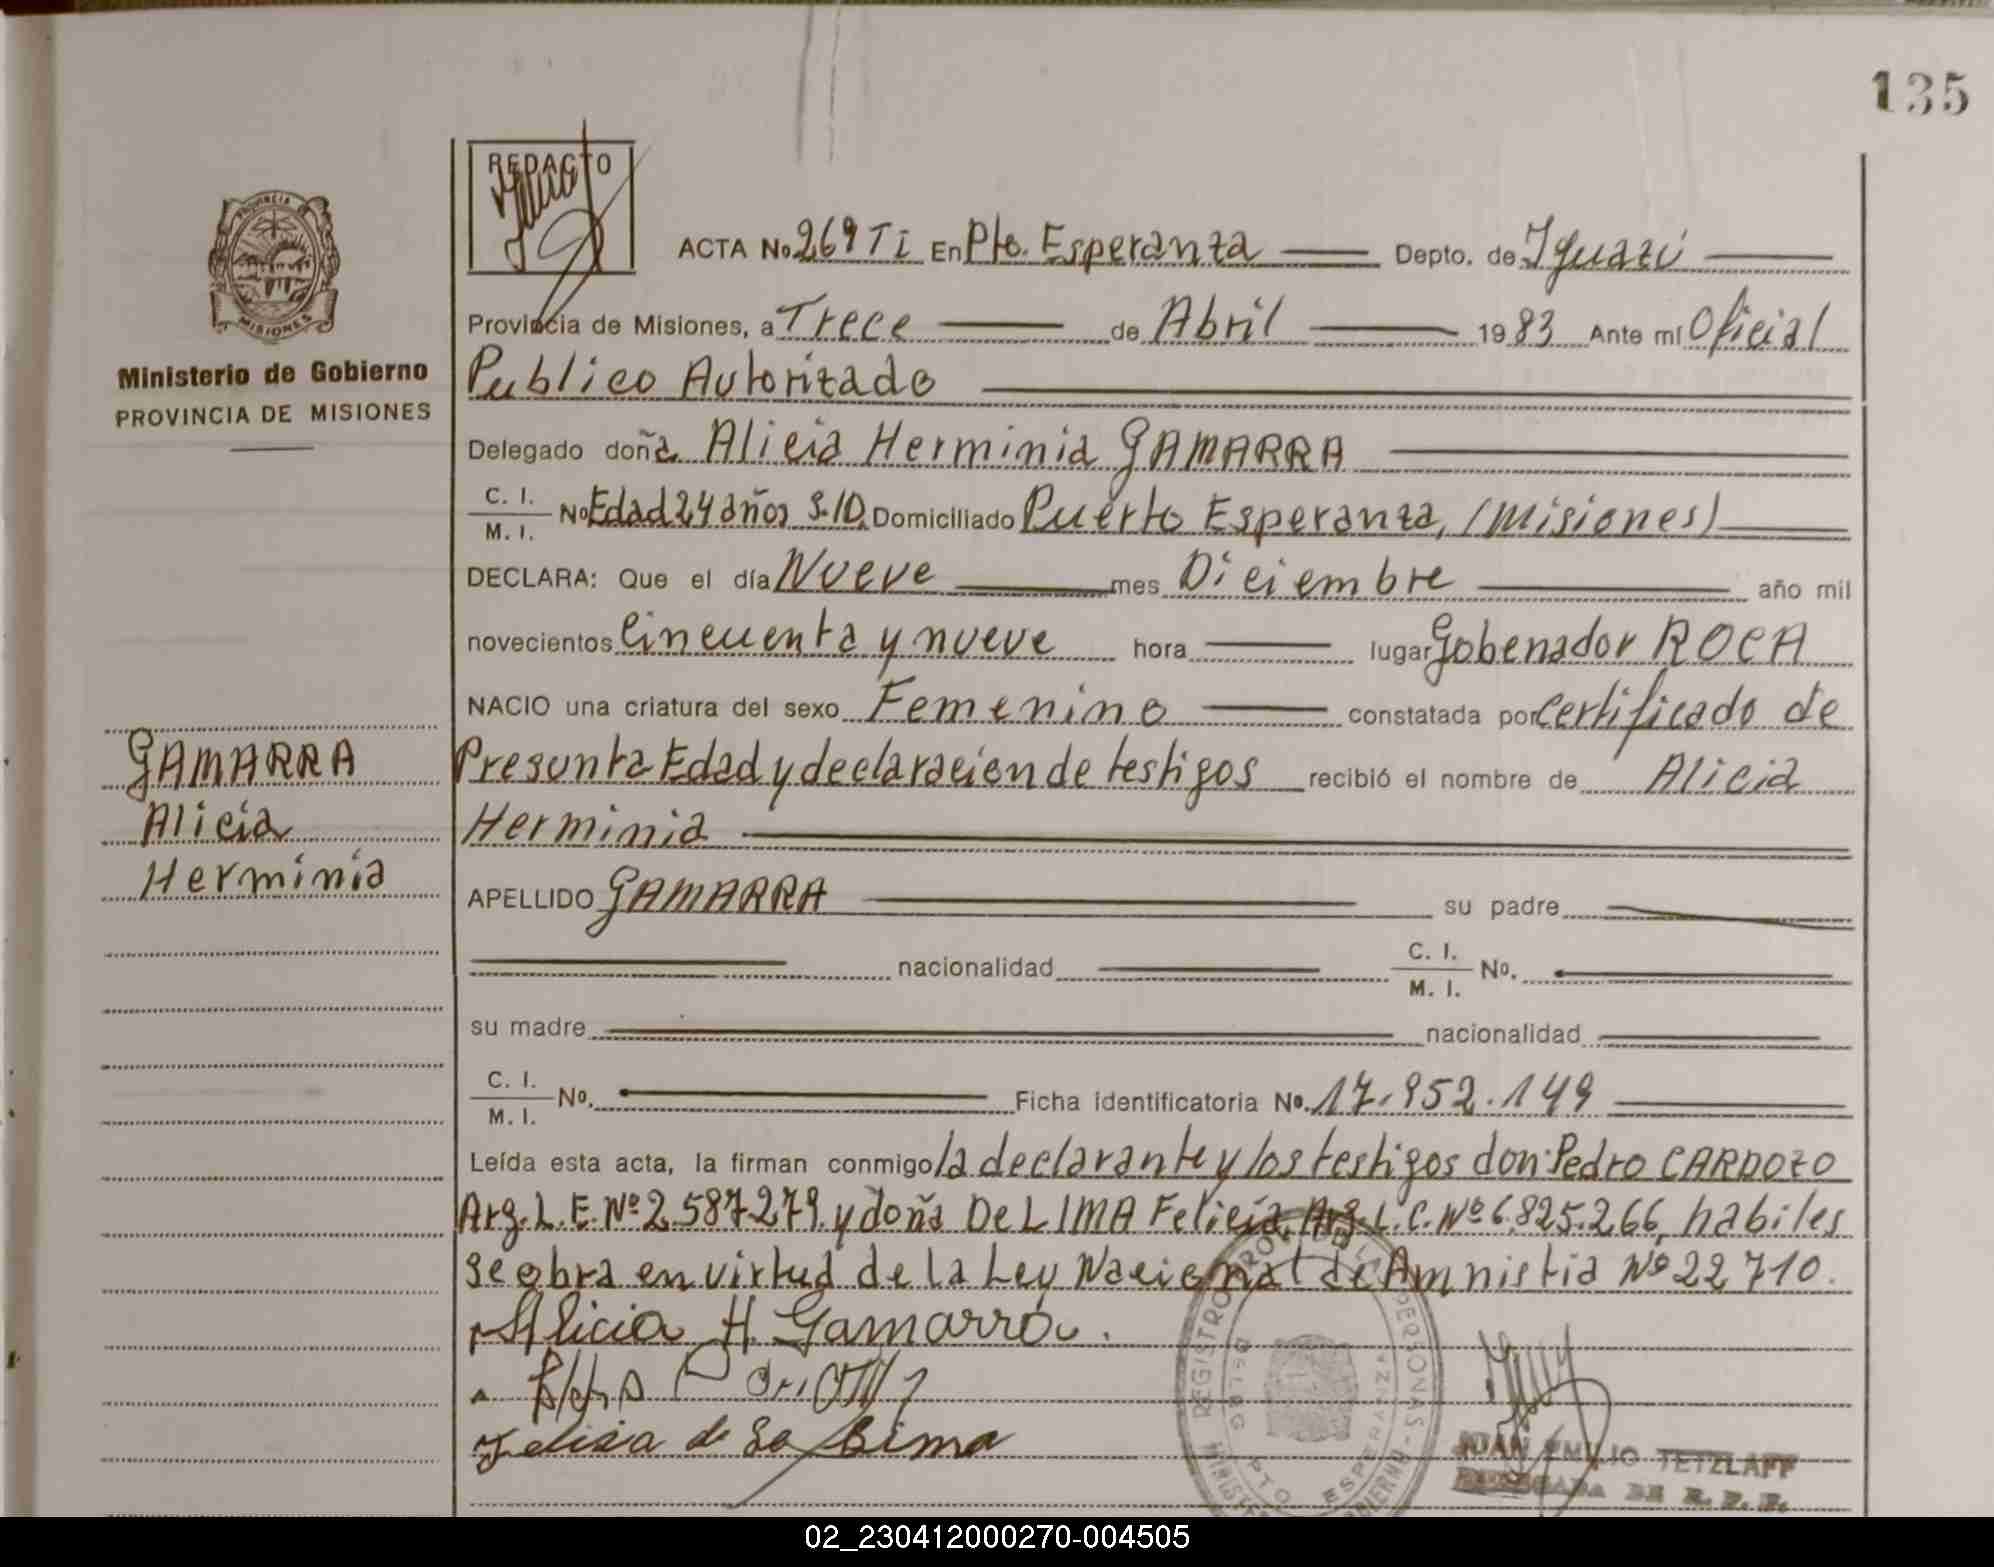 135
REDACTO
ACTA No. 269 Ti En Pto. Esperanza Depto. de Iguazú
Provincia de Misiones, a Trece de Abril 1983 Ante mí Oficial
Publico Autorizado
PROVINCIA DE
MISIONES
Ministerio de Gobierno
PROVINCIA DE MISIONES
Delegado doña Alicia Herminia GAMARRA
C. I.
M. I. No Edad 24 años S.ID. Domiciliado Puerto Esperanza, (Misiones)
DECLARA: Que el día Nueve mes Diciembre año mil
novecientos Cincuenta y nueve hora lugar Gobenador ROCA
NACIO una criatura del sexo Femenino constatada por Certificado de
Presunta Edad y declaración de testigos recibió el nombre de Alicia
Herminia
GAMARRA
Alicia
Herminia
APELLIDO GAMARRA su padre
nacionalidad C. I.
M. I. No.
su madre nacionalidad
C. I.
M. I. No. Ficha identificatoria No. 17.952.149
Leída esta acta, la firman conmigo la declarante y los testigos don Pedro CARDOZO
Arg. L.E. Nº 2.587.279. y doña De LIMA Felicia, Arg. L.C. Nº 6.825.266, habiles
se obra en virtud de la Ley Nacional de Amnistia Nº 22 710.
Alicia H. Gamarra.
Felisa de Lima
JUAN EMILIO TETZLAFF
DE R. P. P.
02_230412000270-004505